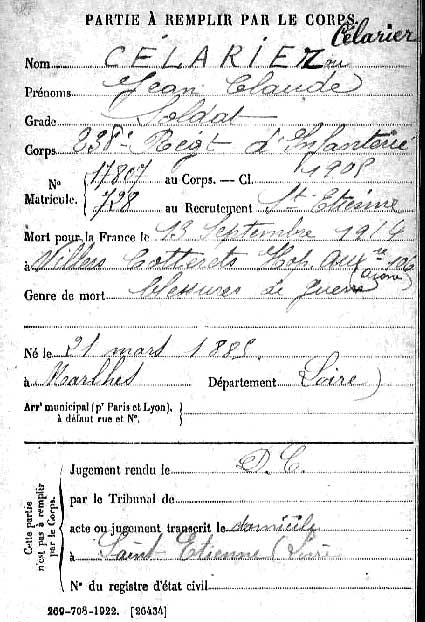 PARTIE À REMPLIR PAR LE CORPS.
Célarier
Nom CÉLARIEZ ou
Prénoms Jean Claude
Grade Soldat
Corps 238e Regt d'Infanterie
N° 17807 au Corps. — Cl. 1905
Matricule. 728 au Recrutement St Etienne
Mort pour la France le 13 Septembre 1914
à Villers Cotterets Hop. Aux re 106
(Aisne)
Genre de mort blessures de guerre
Né le 21 mars 1885.
à Marlhes Département Loire)
Arrt municipal (pr Paris et Lyon),
à défaut rue et N°.
Cette partie
n'est pas à remplir
par le Corps.
Jugement rendu le D. C.
par le Tribunal de
acte ou jugement transcrit le domicile
à Saint Etienne (Loire
N° du registre d'état civil
269-708-1922. [26434]